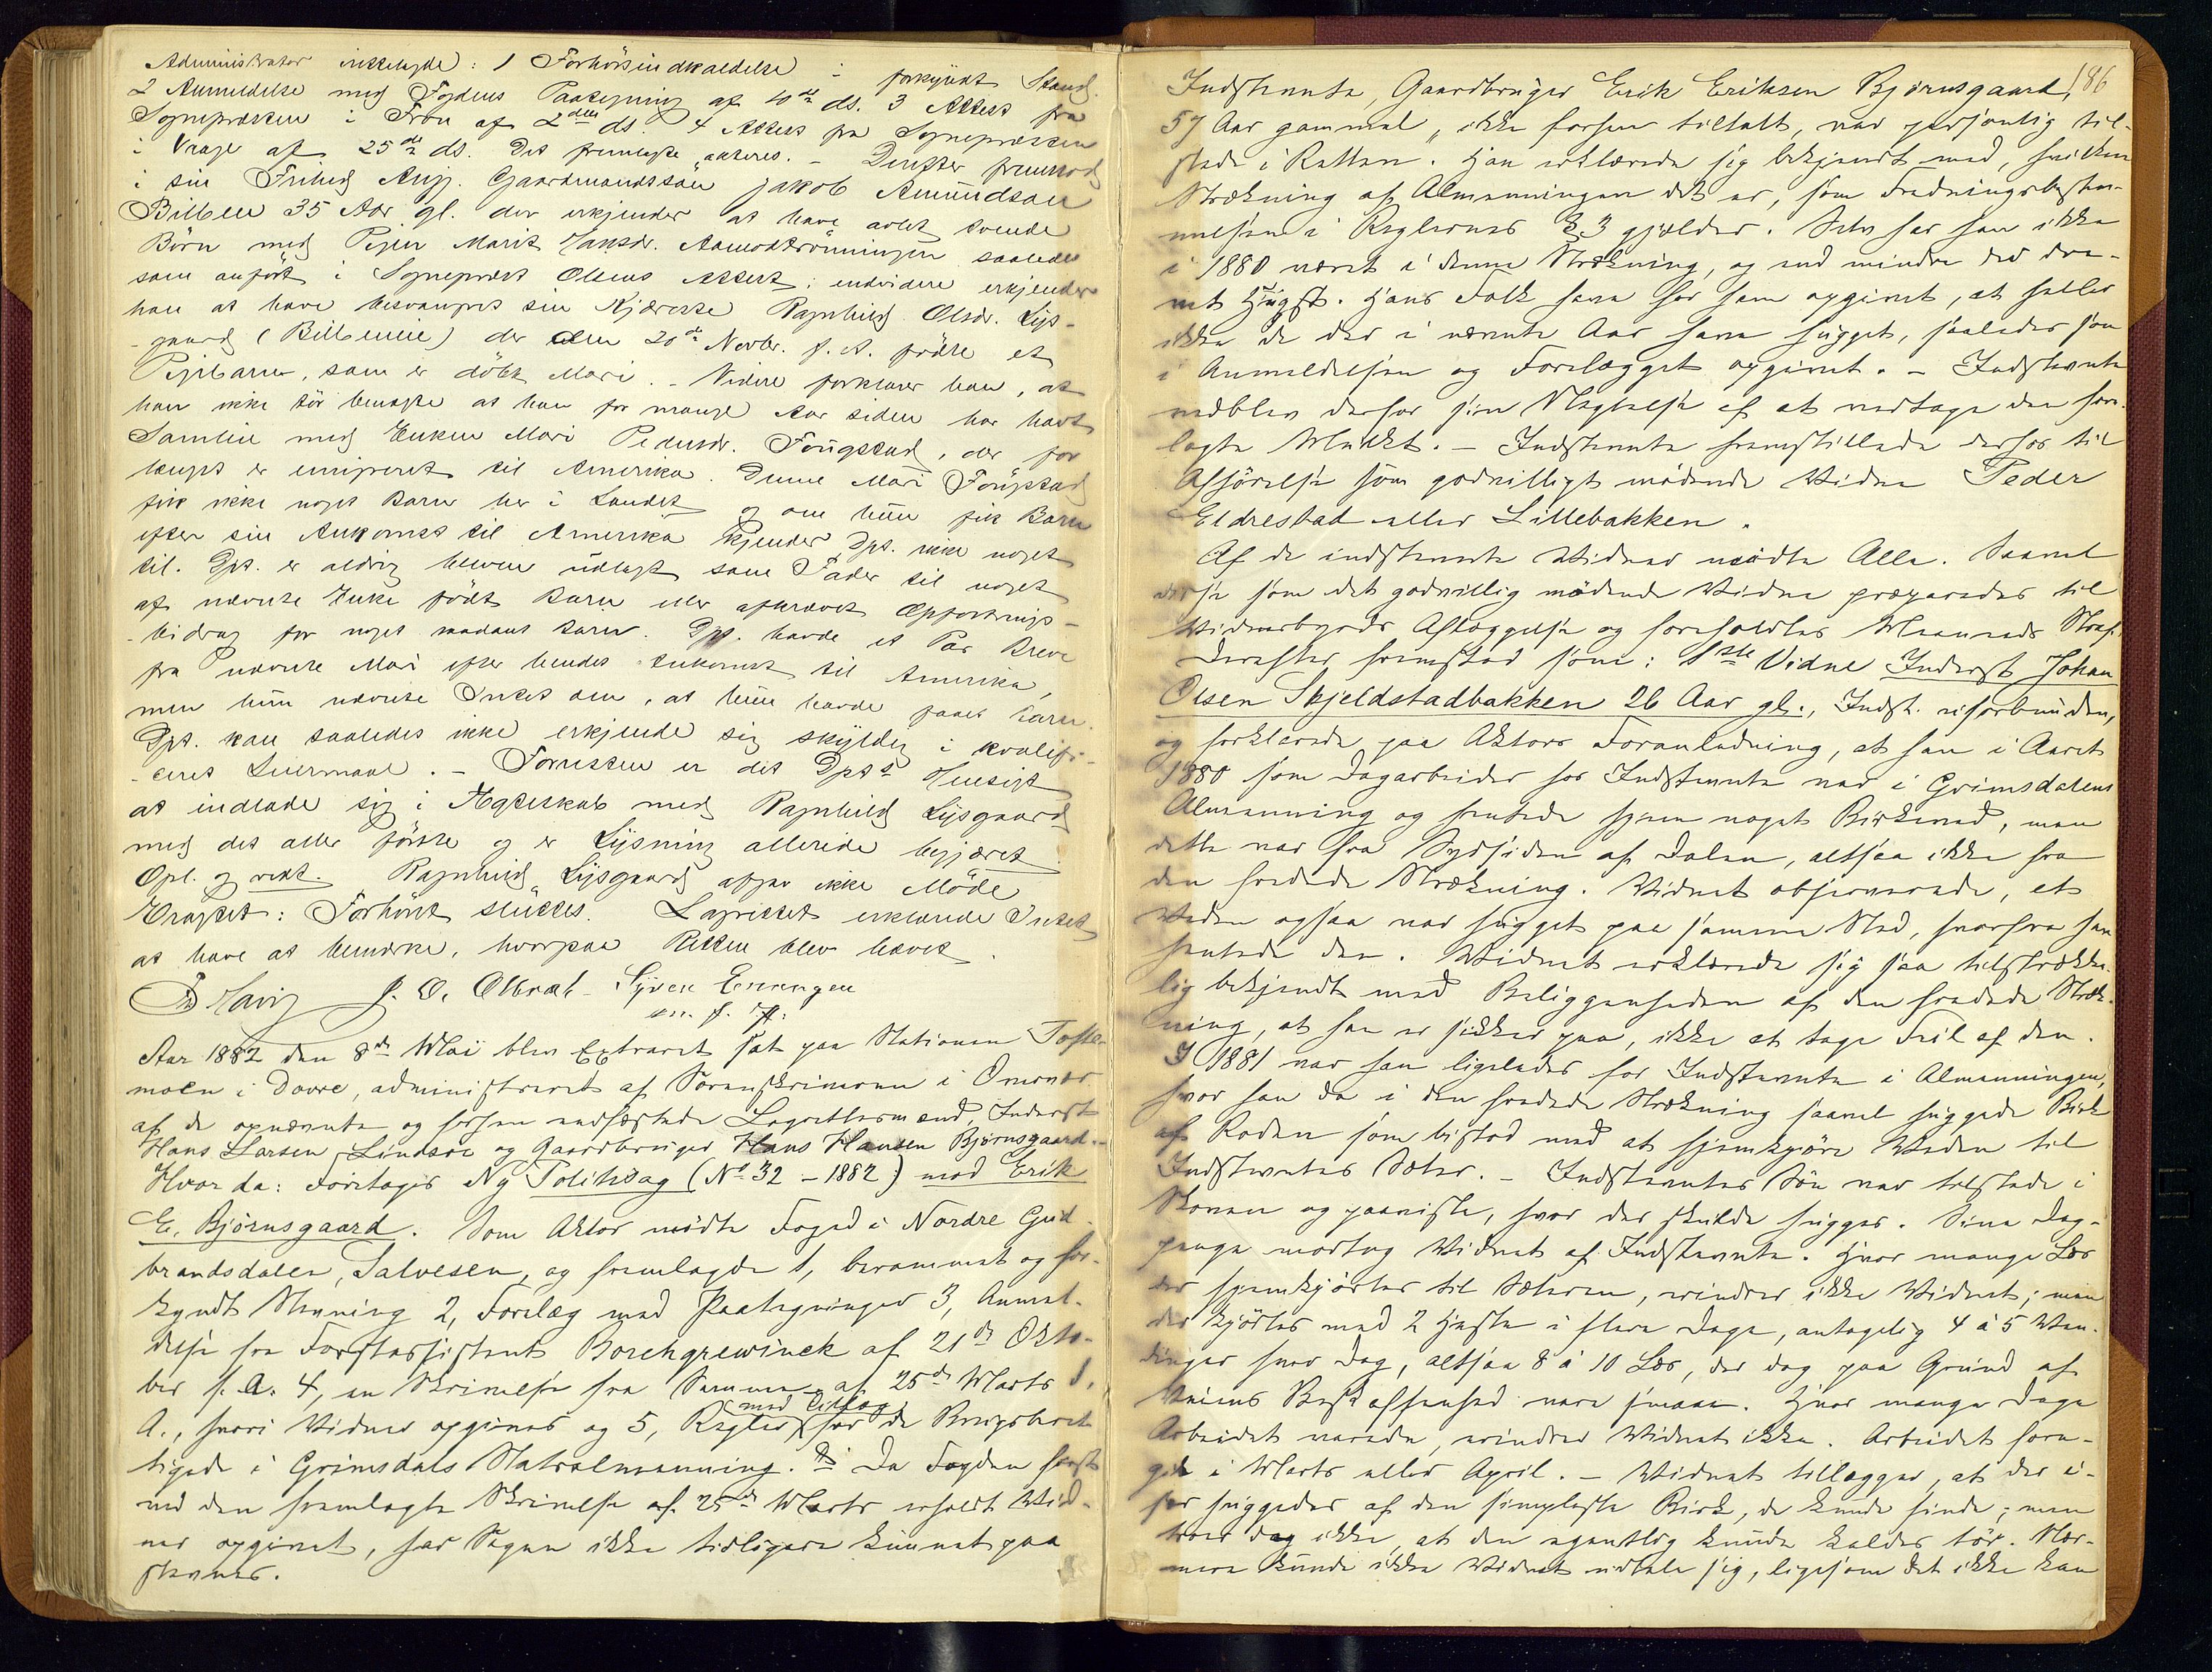 Administrator irettelagde: 1 Forhörsindkaldelse i forkyndt Stand
2 Anmeldelse med Fogdens Paategning af 10de ds. 3 Attest fra
Sognepræsten i Fron af 2den ds. 4 Attest fra Sognepræsten
i Vaage af 25de ds. Det fremlagte akteres. – Derefter fremstod
i sin Frihed Ang. Gaardmandssön Jakob Amundsen
Bilben 35 Aar gl. der erkjender at have avlet tvende
Börn med Pigen Marit Hansdr. saaledes
som anfört i Sognepræst Olsens Attest; endvidere erkjender
han at have besvangret sin Kjæreste Ragnhild Olsdr. Lys-
-gaard (Bilbeneie) der den 30de Novbr. f. A. födte et
Pigebarn, som er döbt Mari. – Videre forklarer han, at
han ikke tör benægte at han for mange Aar siden har havt
Samleie med Enken Mari Pedersdr. Fougstad, der for
længst er emigreret til Amerika. Denne Mari Fougstad
fik ikke noget Barn her i Landet og om hun fik Barn
efter sin Ankomst til Amerika kjender Dpt. ikke noget
til. Dpt. er aldrig bleven udlagt som Fader til noget
af nævnte Enke födt Barn eller afkrævet Opfostrings-
-bidrag for noget saadant Barn. Dpt. havde et Par Breve
fra nævnte Mari efter hendes Ankomst til Amerika,
men hun nævnte Intet om, at hun havde faaet Barn.
Dpt. kan saaledes ikke erkjende sig skyldig i kvalifi-
-ceret Leiermaal. – Forresten er det Dpts Hensigt
at indlade sig i Ægteskab med Ragnhild Lysgaard
med det aller förste og er Lysning allerede begjæret
Opl. og vedt. Ragnhild Lysgaard afgav ikke Möde
Eragtet: Forhöret sluttes. Lagrettet erklærede Intet
at have at bemærke, hvorpaa Retten blev hævet.
J. O. Olbrah Syver
m. f. P.
Aar 1882 den 8de Mai blev Extraret sat paa Stationen Tofte-
moen i Dovre, administreret af Sorenskriveren i Overvær
af de opnævnte og forhen edfæstede Lagrettesmænd, Inderst
Hans Larsen Lindsöe og Gaardbruger Hans Hansen Bjørnsgaard.
Hvor da: Foretoges Ny Politisag (No 32 – 1882) mod Erik
E. Bjørnsgaard. Som Aktor mödte Foged i Nordre Gud-
brandsdalen, Salvesen, og fremlagde 1, berammet og for-
kyndt Stevning 2, Forelæg med Paategninger 3, Anmel-
delse fra Forstassistent Borchgrewinck af 21de Okto-
ber f. A. 4, en Skrivelse fra Samme af 25de Marts d.
A., hvori Vidner opgives og 5, Regler med Tillæg for de Brugsberet-
tigede i Grimsdals Statsalmenning. Da Fogden först
ved den fremlagte Skrivelse af 25de Marts erholdt Vid-
ner opgivet, har Sagen ikke tidligere kunnet paa-
stevnes.
186
Indstevnte, Gaardbruger Erik Eriksen Bjørnsgaard,
57 Aar gammel, ikke forhen tiltalt, var personlig til-
stede i Retten. Han erklærede sig bekjendt med, hvilken
Strækning af Almenningen det er, som Fredningsbestem-
melsen i Reglernes § 3 gjælder. Selv har han ikke
i 1880 været i denne Strækning, og end mindre der dre-
vet Hugst. Hans Folk have for ham opgivet, at heller
ikke de der i nævnte Aar have hugget, saaledes som
i Anmeldelsen og Forelægget opgivet. – Indstevnte
vedblev derfor sin Vægrelse af at vedtage den fore-
lagte Mulkt. – Indstevnte fremstillede derhos til
Afhörelse som godvilligt mödende Vidne Peder
Eldrestad eller Lillebakken.
Af de indstevnte Vidner mödte Alle. Saavel
disse som det godvillig mödende Vidne præparedes til
Vidnesbyrds Aflæggelse og foreholdtes Meeneds Straf.
Derefter fremstod som: 1ste Vidne Inderst Johan
Olsen Skjeldstadbakken 26 Aar gl., Indst. uforbunden,
og forklarede paa Aktors Foranledning, at han i Aaret
1880 som Dagarbeider hos Indstevnte var i Grimsdalens
Almenning og hentede hjem noget Birkeved, men
dette var fra Sydsiden af Dalen, altsaa ikke fra
den fredede Strækning. Vidnet observerede, at
Veden ogsaa var hugget paa samme Sted, hvorfra han
hentede den. Vidnet erklærede sig saa tilstrække-
lig bekjendt med Beliggenheden af den fredede Stræk-
ning, at han er sikker paa, ikke at tage Feil af den.
I 1881 var han ligeledes hos Indstevnte i Almenningen,
hvor han da i den fredede Strækning saavel huggede Birk
af Roden som bistod med at hjemkjöre Veden til
Indstevntes Sæter. – Indstevntes Sön var tilstede i
Skoven og paaviste, hvor der skulde hugges. Sine Dag-
penge modtog Vidnet af Indstevnte. Hvor mange Læs
der hjemkjörtes til Sæteren, erindrer ikke Vidnet; men
der kjörtes med 2 Heste i flere Dage, antagelig 4 à 5 Ven-
dinger hver Dag, altsaa 8 à 10 Læs, der dog paa Grund af
Veiens Beskaffenhed vare smaae. Hvor mange Dage
Arbeidet varede, erindrer Vidnet ikke. Arbeidet fore-
gik i Marts eller April. – Vidnet tillægger, at der i-
sær huggedes af den simpleste Birk, de kunde finde; men
tror dog ikke, at den egentlig kunde kaldes tör. Nær-
mere kunde ikke Vidnet udtale sig, ligesom det ikke kan